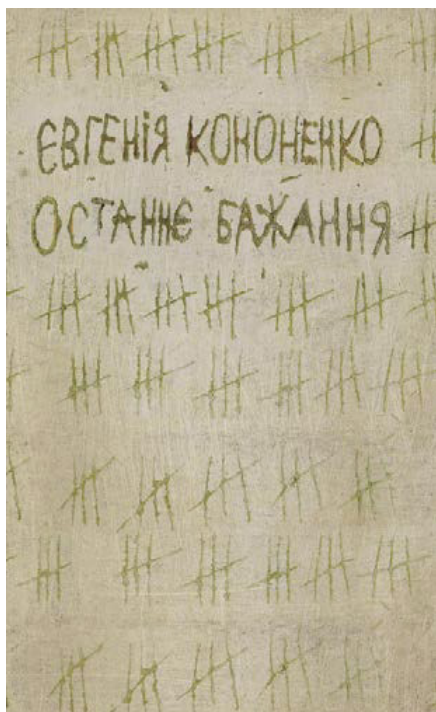 ЄВГЕНіЯ КОНОНЕНКО
ОСТАННЄ БАЖАННЯ